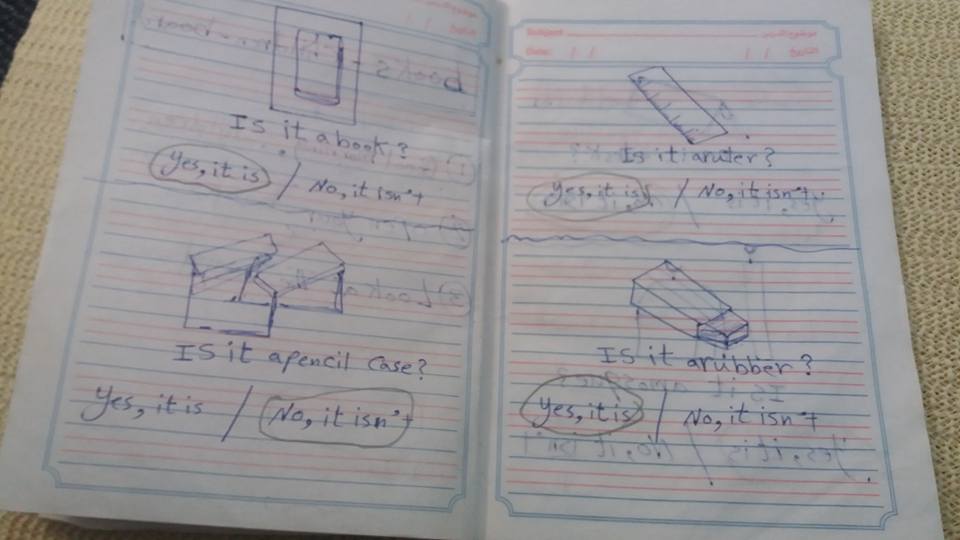 Is it abook?
Yes, it is / No, it isn't
Is it apencil case?
Yes, it is / No, it isn't
Subject
Date: / /
Is it aruler?
Yes, it is / No, it isn't
Is it arubber?
Yes, it is / No, it isn't